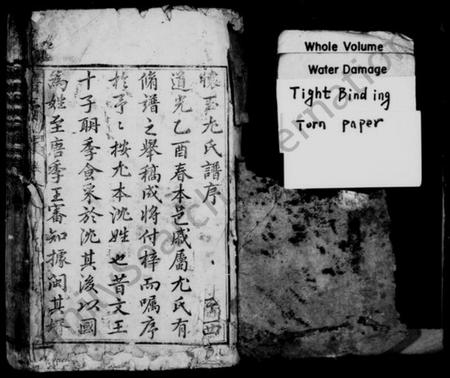 懷玉尤氏譜序
道光乙酉春本邑戚屬尤氏有
脩譜之舉稿成將付梓而囑序
於予予按尤本沈姓也昔文王
十子聃季食采於沈其後以國
為姓至唐季王審知據閩其
Whole Volume
Water Damage
Tight Binding
Torn paper